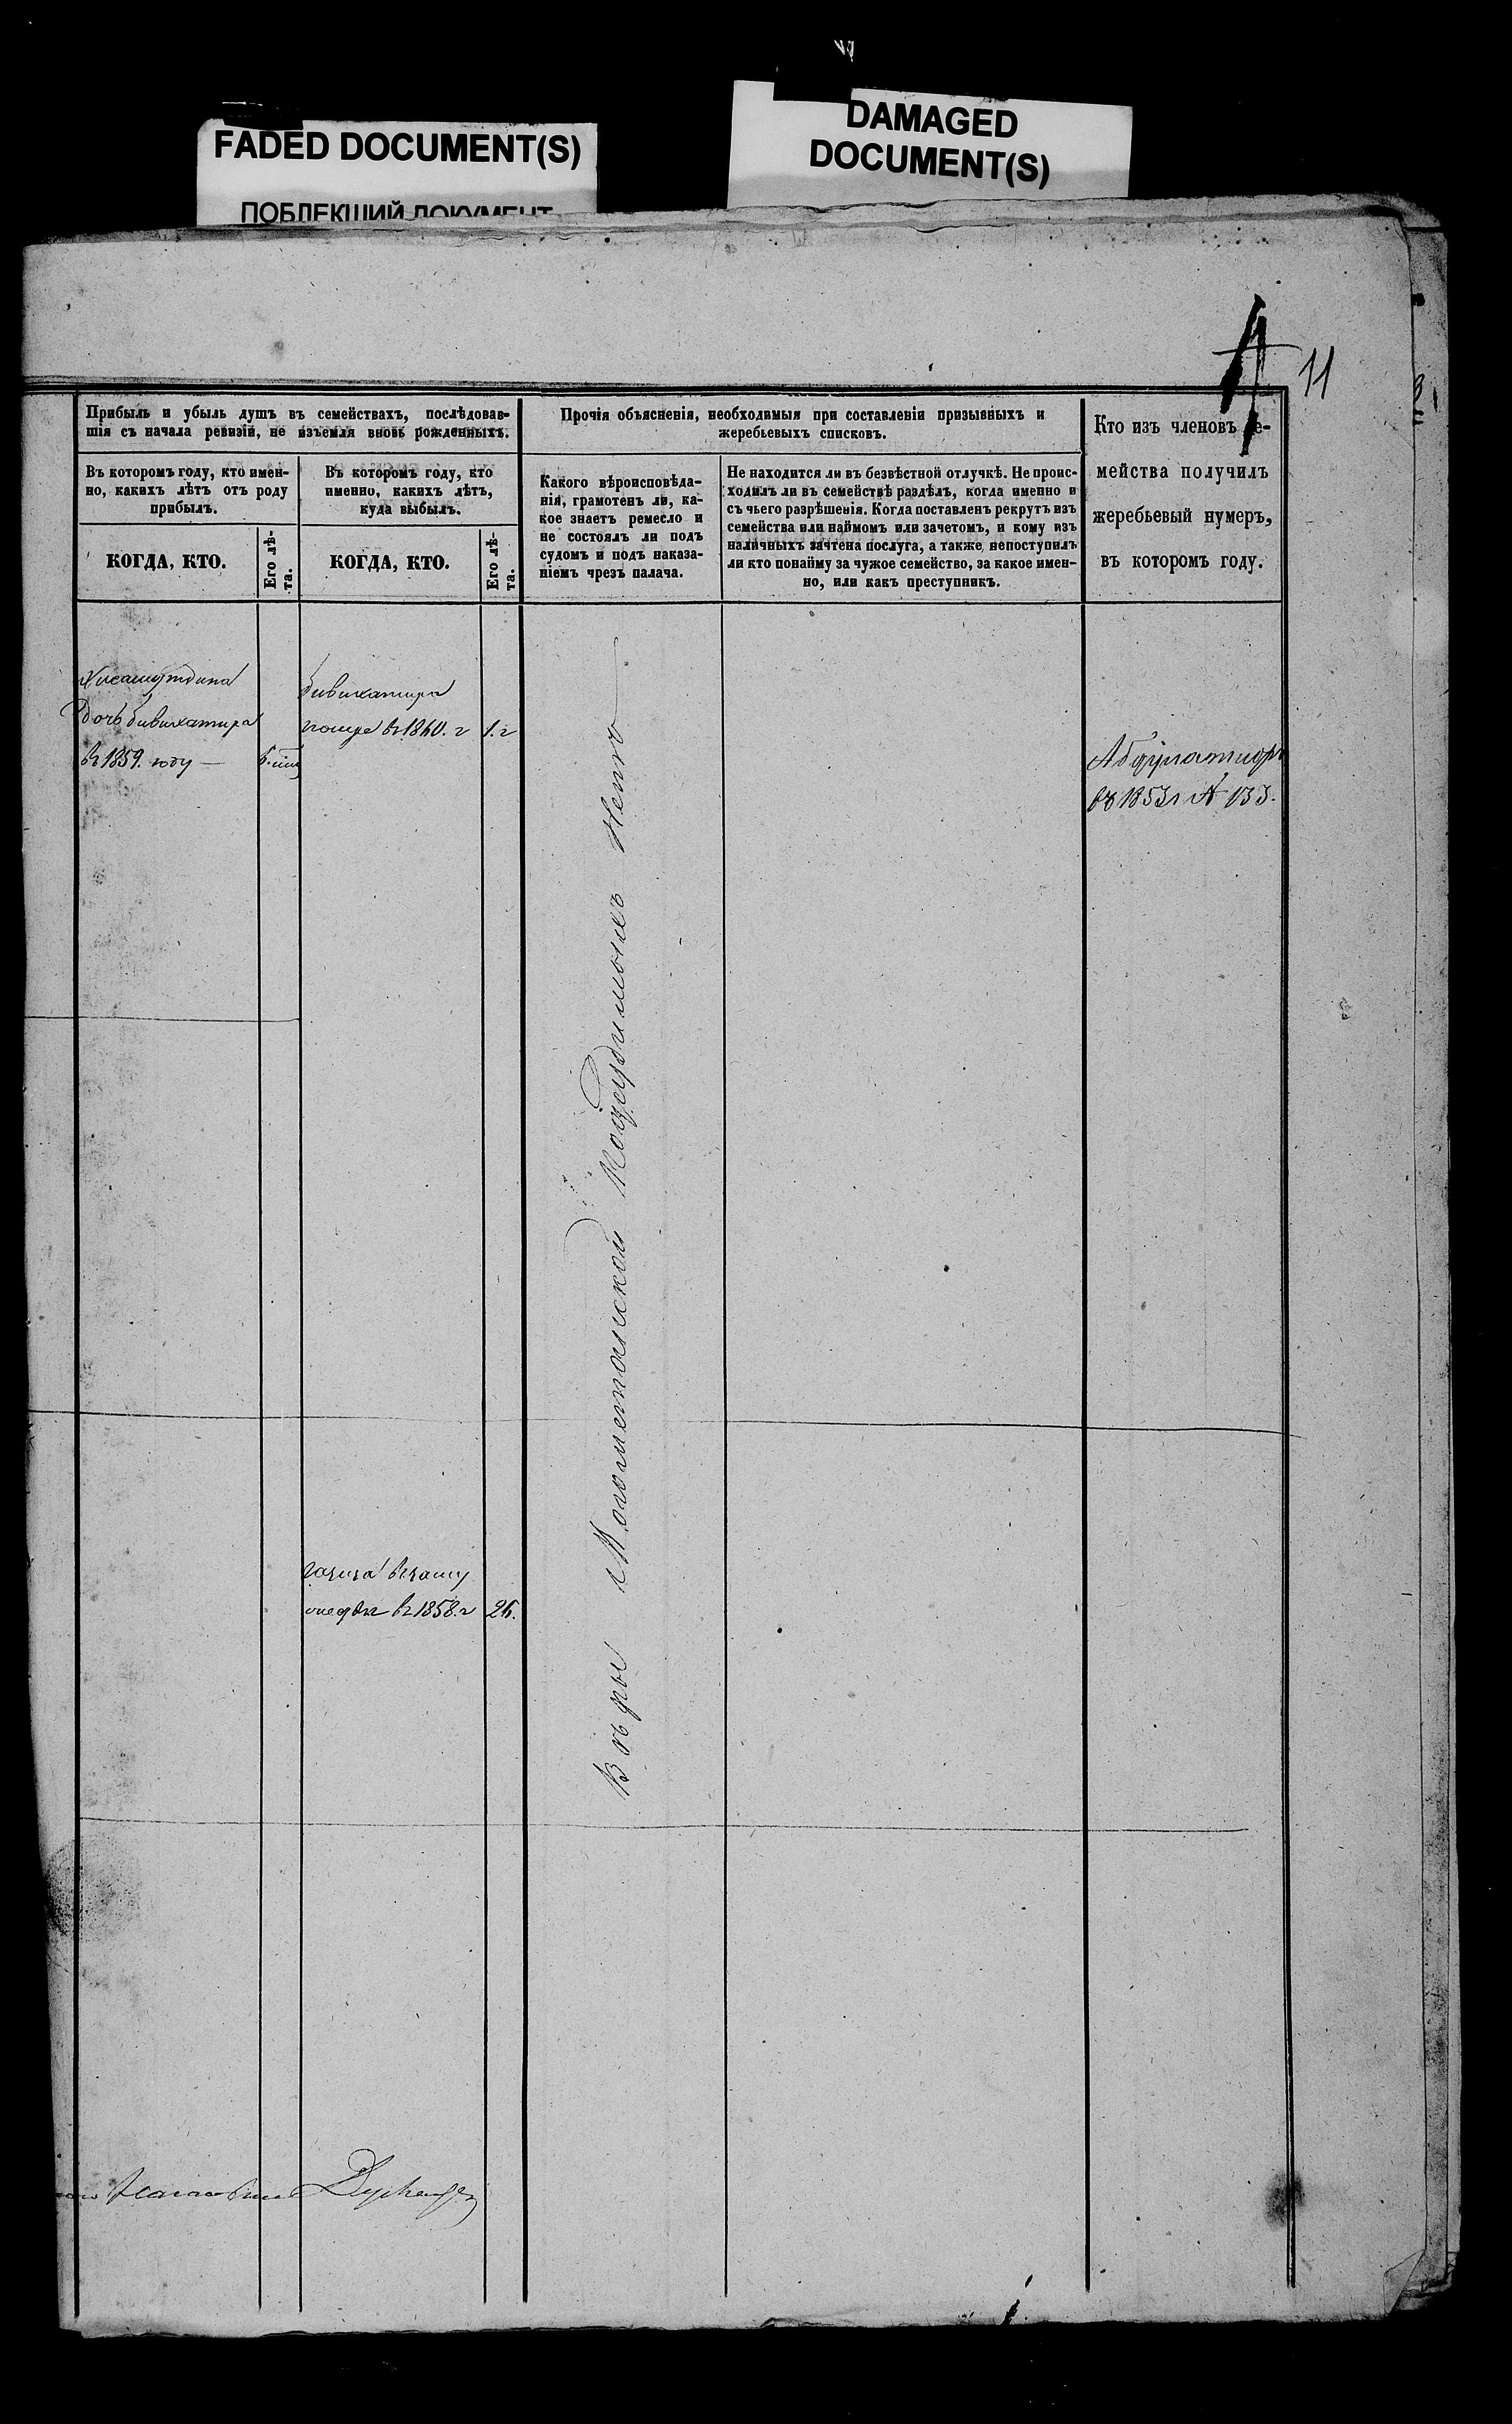 FADED DOCUMENT(S)
ПОБЛЕКШИЙ ДОКУМЕНТ
DAMAGED
DOCUMENT(S)
11
Прибыль и убыль душъ въ семействахъ, послѣдовав-
шія съ начала ревизіи, не изъемля вновь рожденныхъ.
Прочія объясненія, необходимыя при составленіи призывныхъ и
жеребьевыхъ списковъ.
Кто изъ членовъ се-
мейства получилъ
жеребьевый нумеръ,
въ которомъ году.
Въ которомъ году, кто имен-
но, какихъ лѣтъ отъ роду
прибылъ.
Въ которомъ году, кто
именно, какихъ лѣтъ,
куда выбылъ.
Какого вѣроисповѣда-
нія, грамотенъ ли, ка-
кое знаетъ ремесло и
не состоялъ ли подъ
судомъ и подъ наказа-
ніемъ чрезъ палача.
Не находится ли въ безвѣстной отлучкѣ. Не проис-
ходилъ ли въ семействѣ раздѣлъ, когда именно и
съ чьего разрѣшенія. Когда поставленъ рекрутъ изъ
семейства или наймомъ или зачетомъ, и кому изъ
наличныхъ зачтена послуга, а также, непоступилъ
ли кто понайму за чужое семейство, за какое имен-
но, или какъ преступникъ.
КОГДА, КТО.
Его лѣ-
та.
КОГДА, КТО.
Его лѣ-
та.
Хисамутдина
дочь бивихатира
въ 1859. году —
бивихатира
помре въ 1860. г 1. г
въ 1853 г № 133.
въ 1858. г 26.
Вѣры Магометанской Подсудимыхъ Нетъ